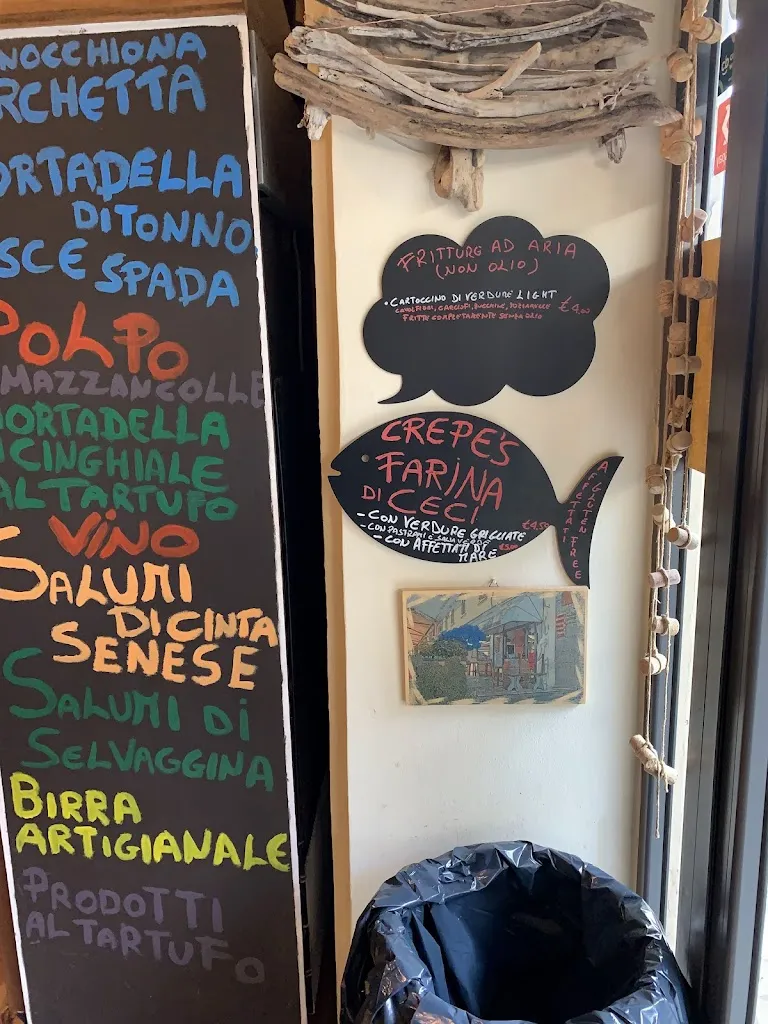 NOCCHIONA
RCHETTA
ORTADELLA
DI TONNO
SCE SPADA
POLPO
MAZZANCOLLE
ORTADELLA
CINGHIALE
AL TARTUFO
VINO
SALUMI
DI CINTA
SENESE
SALUMI DI
SELVAGGINA
BIRRA
ARTIGIANALE
PRODOTTI
AL TARTUFO
FRITTURE AD ARIA
(NON OLIO)
• CARTOCCINO DI VERDURE LIGHT
CAVOLFIORI, CARCIOFI, ZUCCHINE, € 4,00
FRITTE COMPLETAMENTE SENZA OLIO
CREPE'S
FARINA
DI CECI
- CON VERDURE GRIGLIATE €4,50
- CON PASTRAMI E SALSA VERDE
- CON AFFETTATI DI
MARE
AFFETTATI
GLUTEN FREE